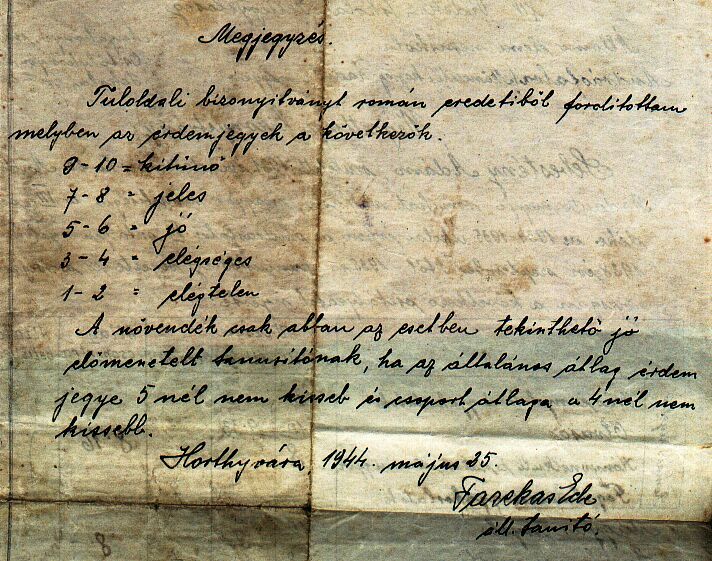 Megjegyzés.
Tuloldali bizonyitványt román eredetiből forditottam
melyben az érdemjegyek a következők.
9-10 = kitünő
7-8 " jeles
5-6 " jó
3-4 = elégséges
1-2 " elégtelen
A növendék csak abban az esetben tekinthető jó
előmenetelt tanusitónak, ha az általános átlag érdem
jegye 5 nél nem kisseb és csoport átlaga a 4 nél nem
kissebb.
Horthyvára, 1944. május 25.
Fazekas Ede
áll. tanitó.